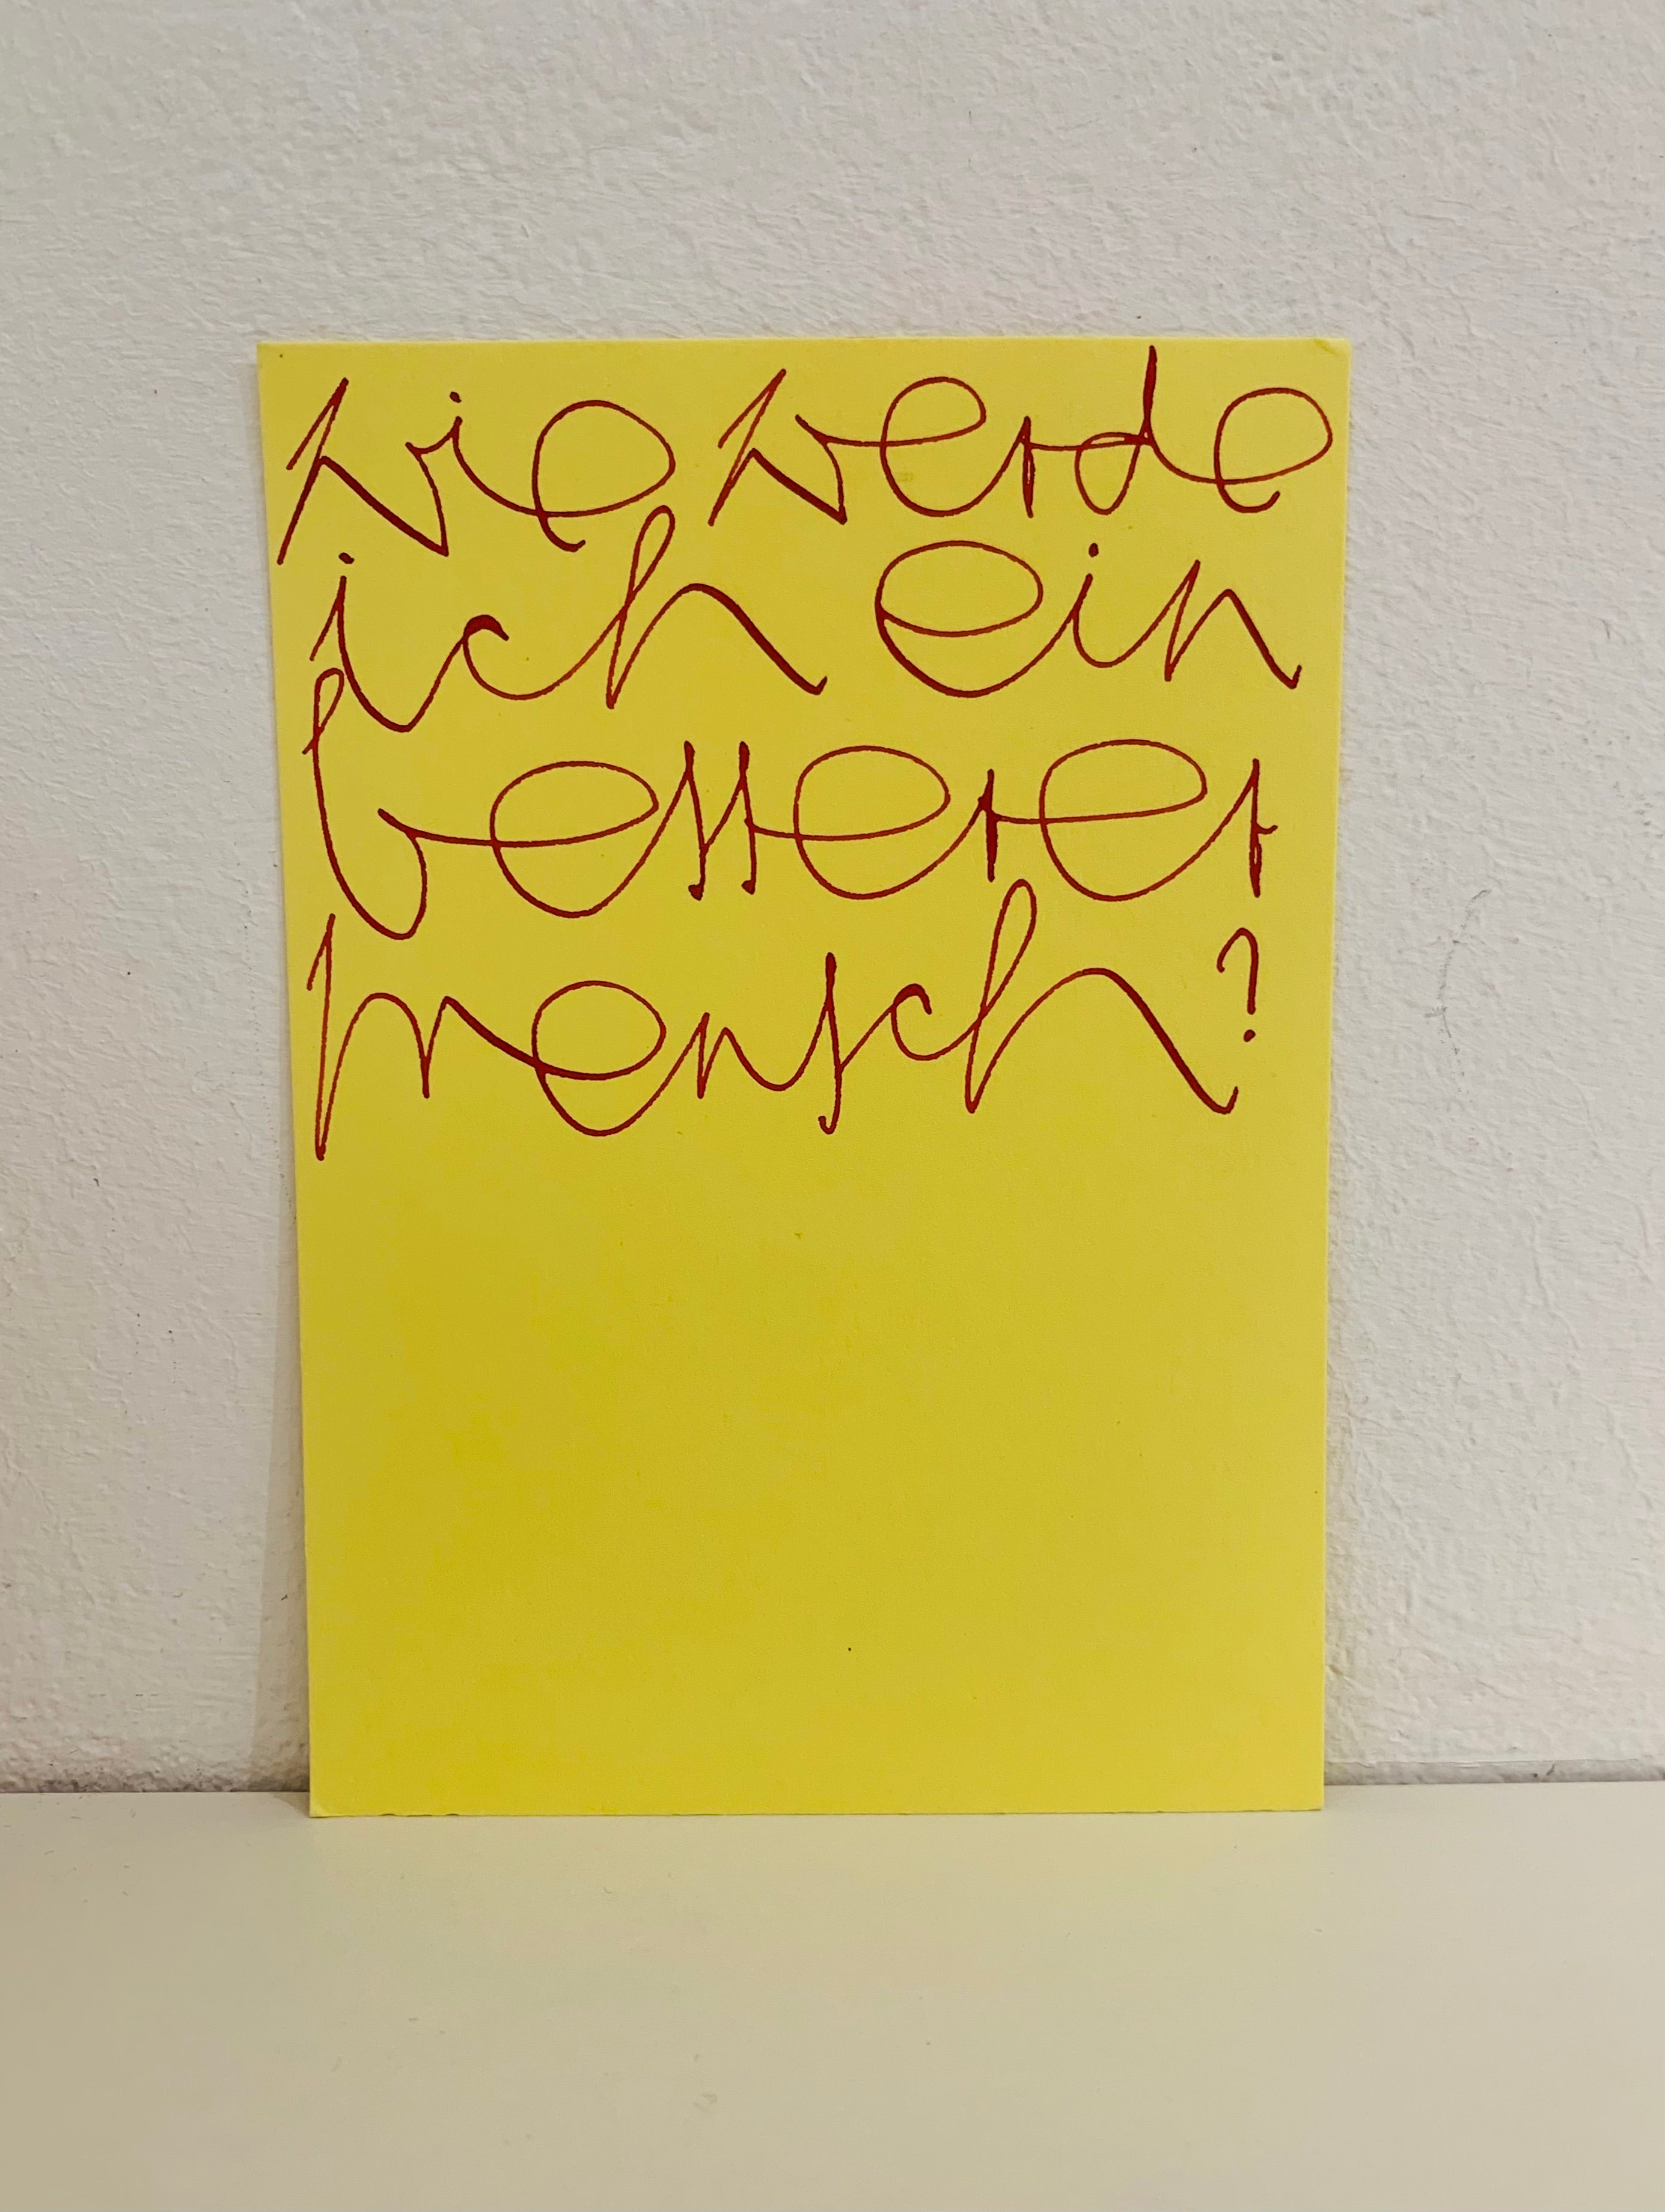 wie werde
ich ein
besserer
mensch?